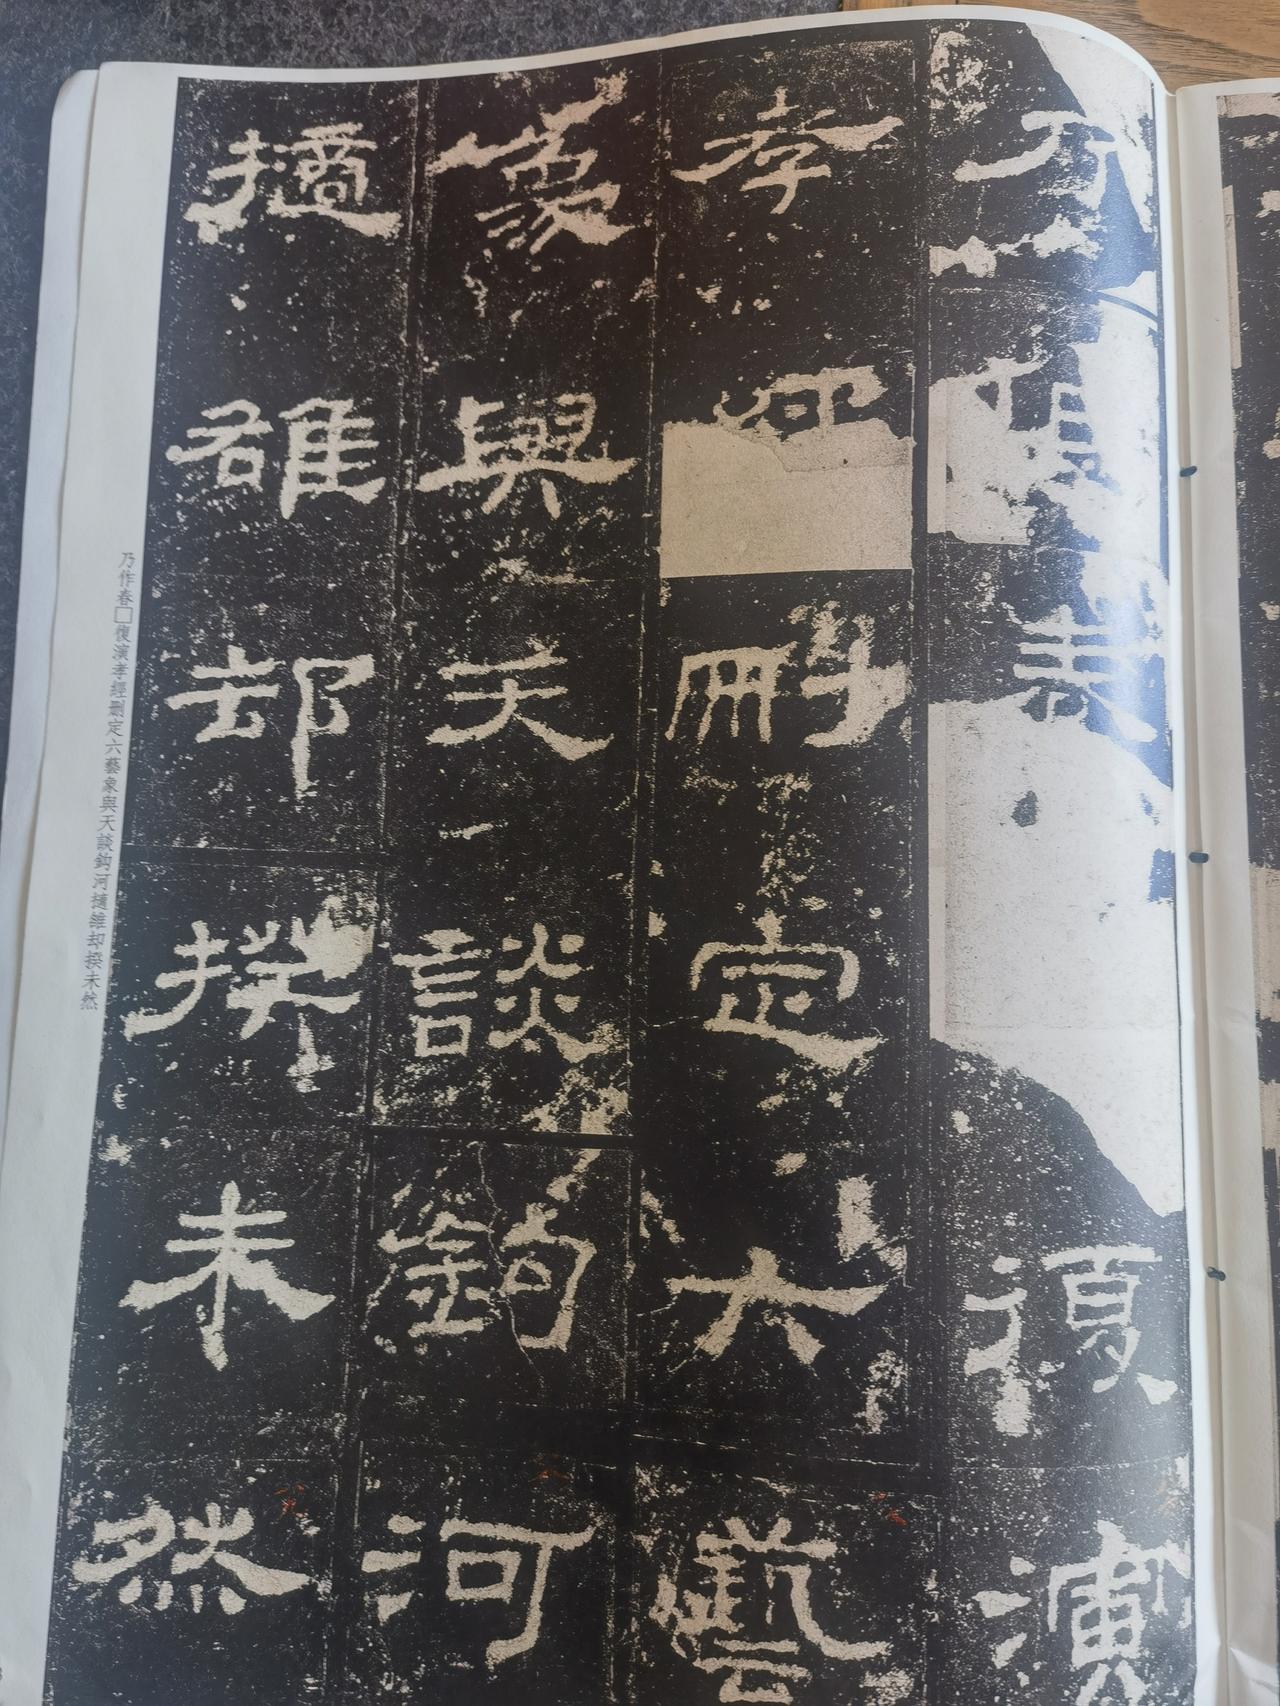 乃作春復演
孝經刪定六藝
象與天談鈎河
擿雒却揆未然
乃作春□復演孝經刪定六藝象與天談鈎河擿雒却揆未然